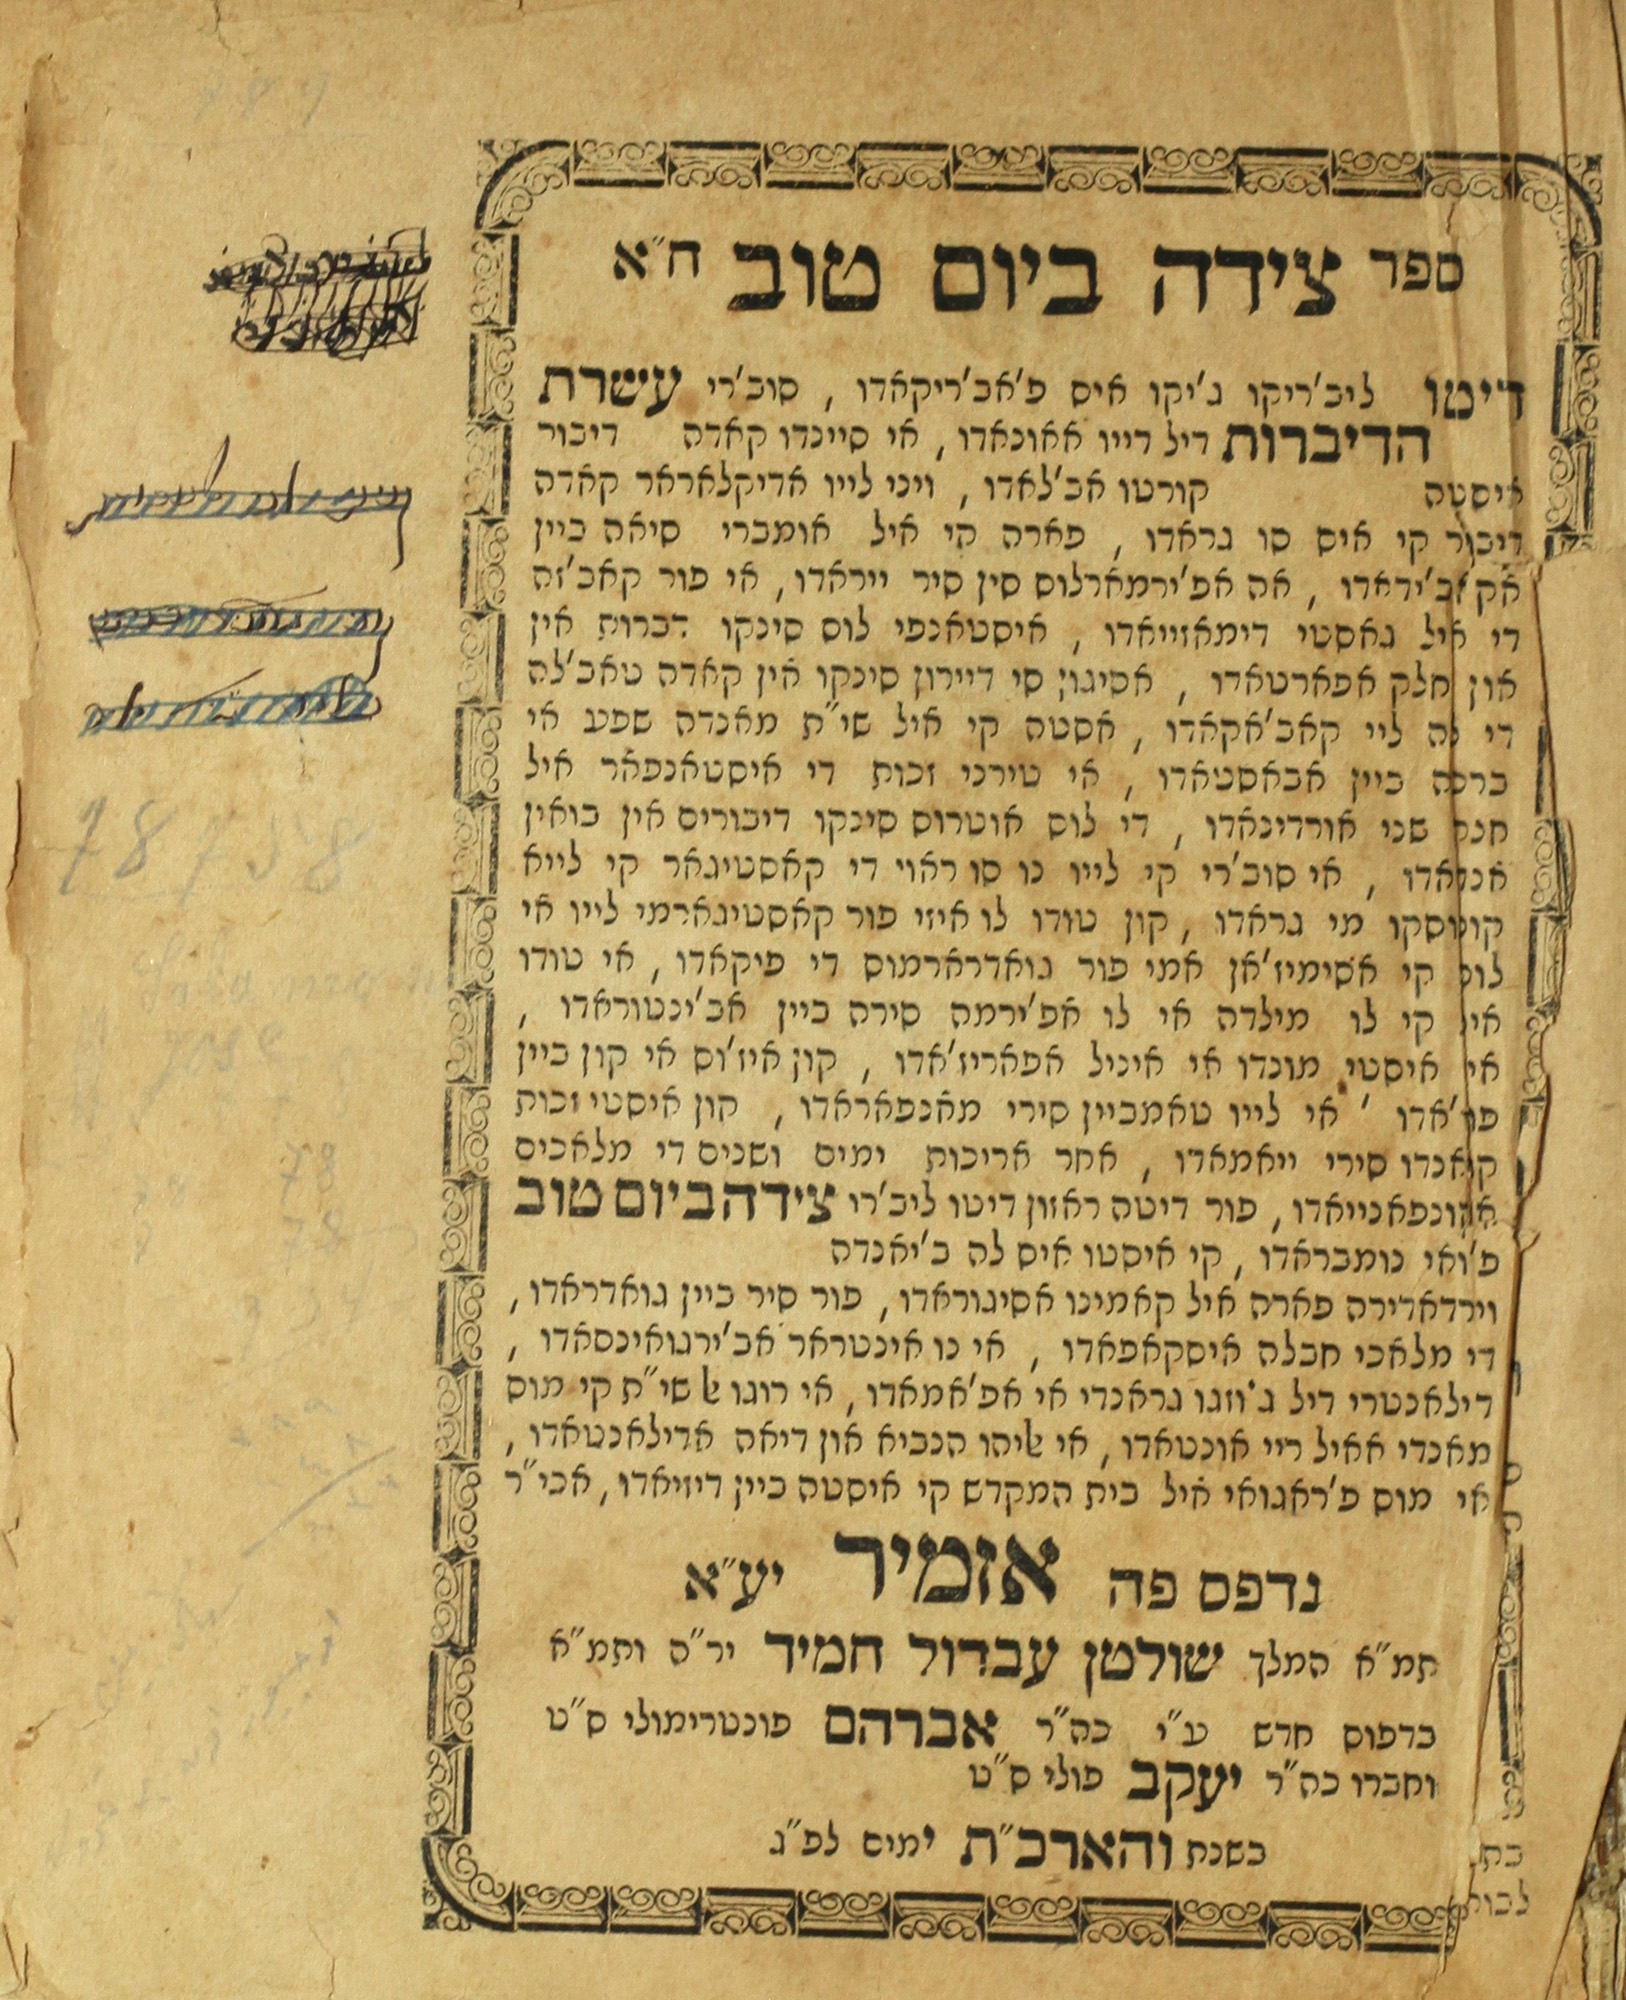 ספר צידה ביום טוב ח״א
דיטו ליב׳ריקו ג׳יקו איס פ׳אב׳ריקאדו , סוב׳רי עשרת
הדיברות דיל דייו אאונאדו , אי סיינדו קאדה דיבור
איסטה קורטו אב׳לאדו , ויני לייו אדיקלאראר קאדה
דיבור קי איס סו גראדו , פארה קי איל אומברי סיאה ביין
אק אב׳ידאדו , אה אפ׳ירמארלוס סין סיר ייראדו , אי פור קאב׳זה
די איל גאסטי דימאזייאדו , איסטאנפי לוס סינקו דברות אין
און חלק אפארטאדו , אסיגון סי דיירון סינקו אין קאדה טאב׳לה
די לה ליי קאב׳אקאדו , אסטה קי איל שי״ת מאנדה שפע אי
ברכה ביין אבאסטאדו , אי טירני זכות די איסטאנפאר איל
חלק שני אורדינאדו , די לוס אוטרוס סינקו דיבוריס אין בואין
אנדאדו , אי סוב׳רי קי לייו נו סו ראוי די קאסטיגאר קי לייא
קונוסקו מי גראדו , קון טודו לו איזי פור קאסטיגארמי לייו אי
לוס קי אסימיז׳אן אמי פור גואדרארמוס די פיקאדו , אי טודו
איל קי לו מילדה אי לו אפ׳ירמה סירה ביין אב׳ינטוראדו ,
אי איסטי מונדו אי איניל אפאריז׳אדו , קון איז׳וס אי קון ביין
פו׳אדו ׳ אי לייו טאמביין סירי מאנפאראדו , קון איסטי זכות
קואנדו סירי ייאמאדו , אחר אריכות ימים ושנים די מלאכים
אקונפאנייאדו , פור דיטה ראזון דיטו ליב׳רו צידה ביום טוב
פ׳ואי נומבראדו , קי איסטו איס לה ב׳יאנדה
וירדאדירה פארה איל קאמינו אסיגוראדו , פור סיר ביין גואדראדו ,
די מלאכי חבלה איסקאפאדו , אי נו אינטראר אב׳ירגואינסאדו ,
דילאנטרי דיל ג׳וזגו גראנדי אי אפ׳אמאדו , אי רוגו ﭏ שי״ת קי מוס
מאנדי אאיל ריי אונטאדו , אי ﭏיהו הנביא און דיאה אדילאנטאדו ,
אי מוס פ׳ראגואי איל בית המקדש קי איסטה ביין דיזיאדו , אכי״ר
נדפס פה אזמיר יע״א
תמ״א המלך שולטן עבדול חמיד יר״ה ותמ״א
בדפוס חדש ע״י כה״ר אברהם פונטרימולי ס״ט
וחברו כה״ר יעקב פולי ס״ט
בשנת והארכ״ת ימים לפ״ג
78738
78
78